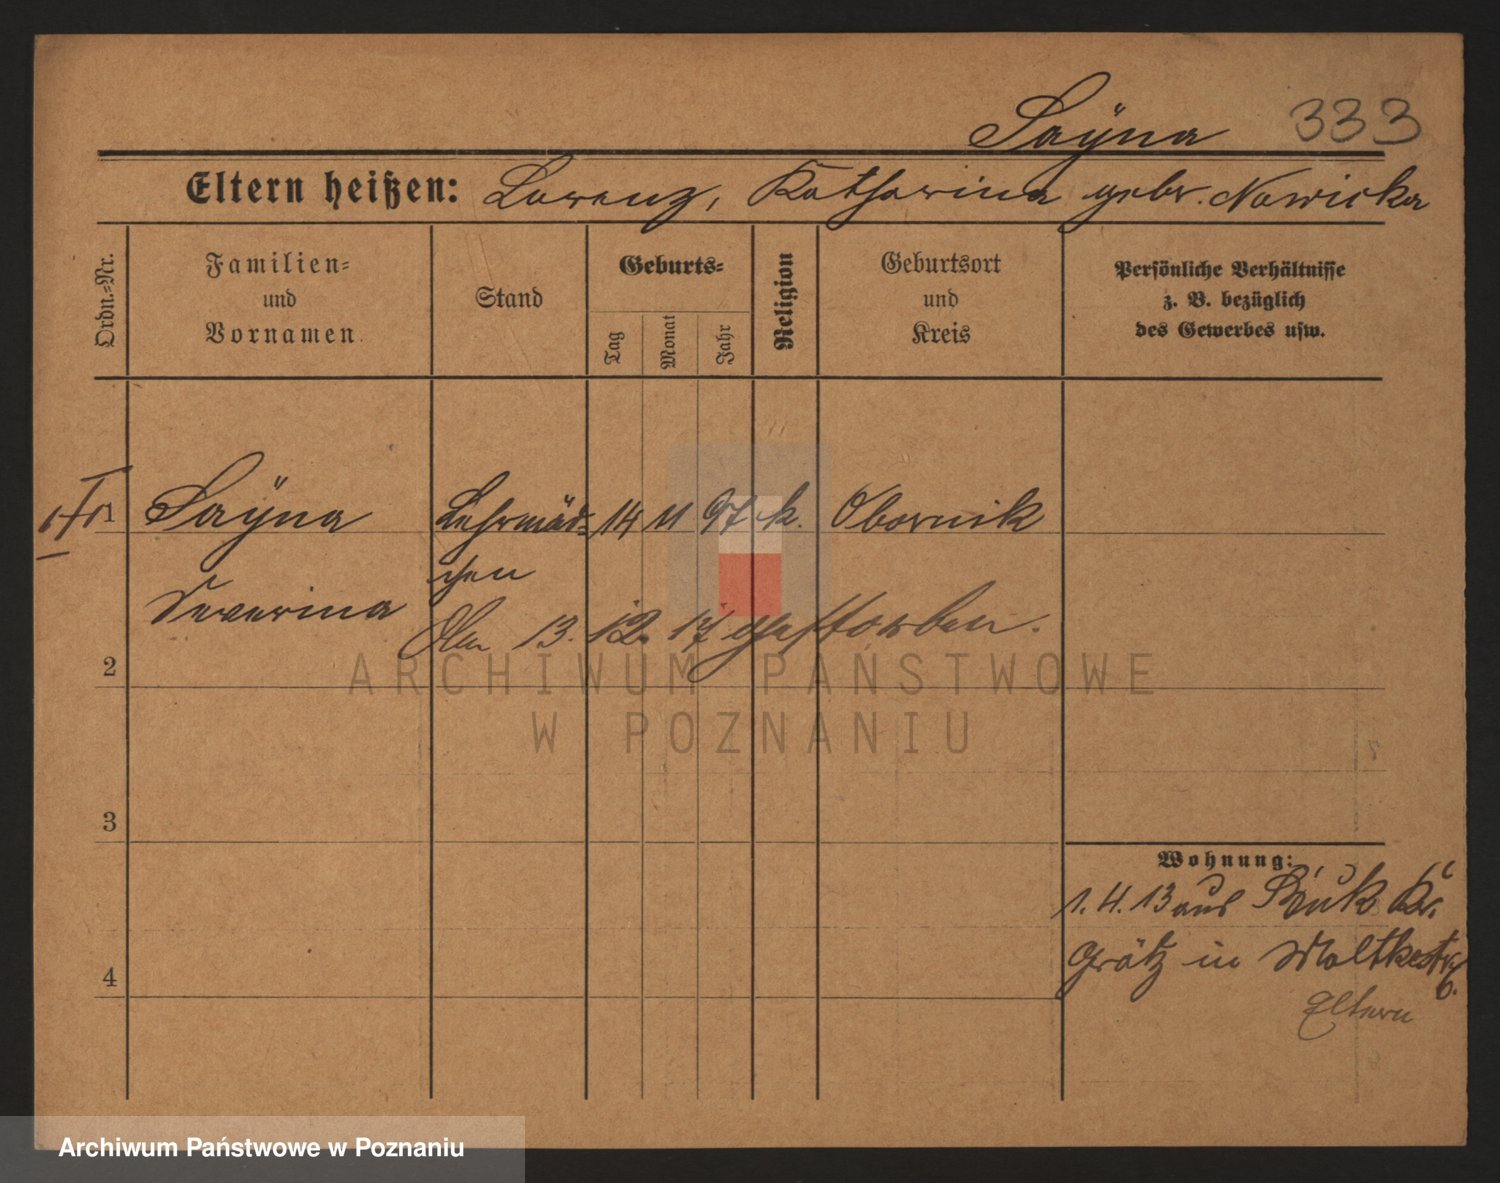 Sayna 333
Eltern heißen: Lorenz, Katharina gebr. Nowicka
Ordn.=Nr.
Familien=
und
Vornamen.
Stand
Geburts=
Tag
Monat
Jahr
Religion
Geburtsort
und
Kreis
Persönliche Verhältnisse
z. B. bezüglich
des Gewerbes usw.
1 Sÿyna Lehrmäd= 14 11 97 k. Obornik
chen
Severina
Am 13. 12. 17 gestorben.
2
ARCHIWUM PAŃSTWOWE
W POZNANIU
3
Wohnung:
1. 4. 13 aus Buk Kr.
Grätz in Moltkestr. 6.
4
Eltern
Archiwum Państwowe w Poznaniu